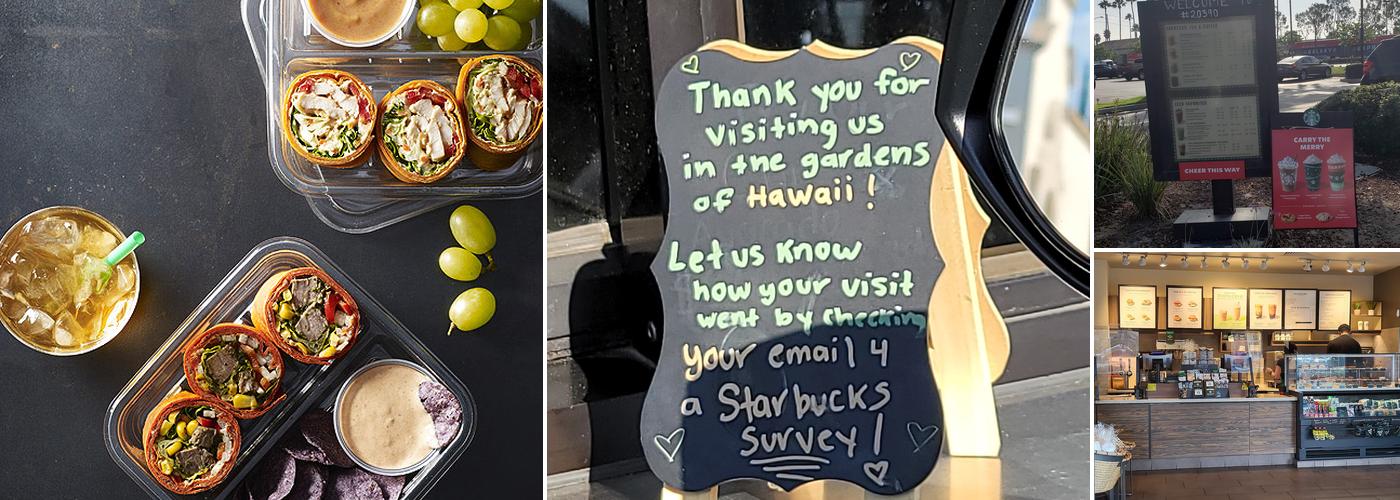 Thank you for
visiting us
in the gardens
of Hawaii !
Let us know
how your visit
went by checking
your email 4
a Starbucks
survey !
WELCOME TO
#20390
CHEER THIS WAY
CARRY THE
MERRY